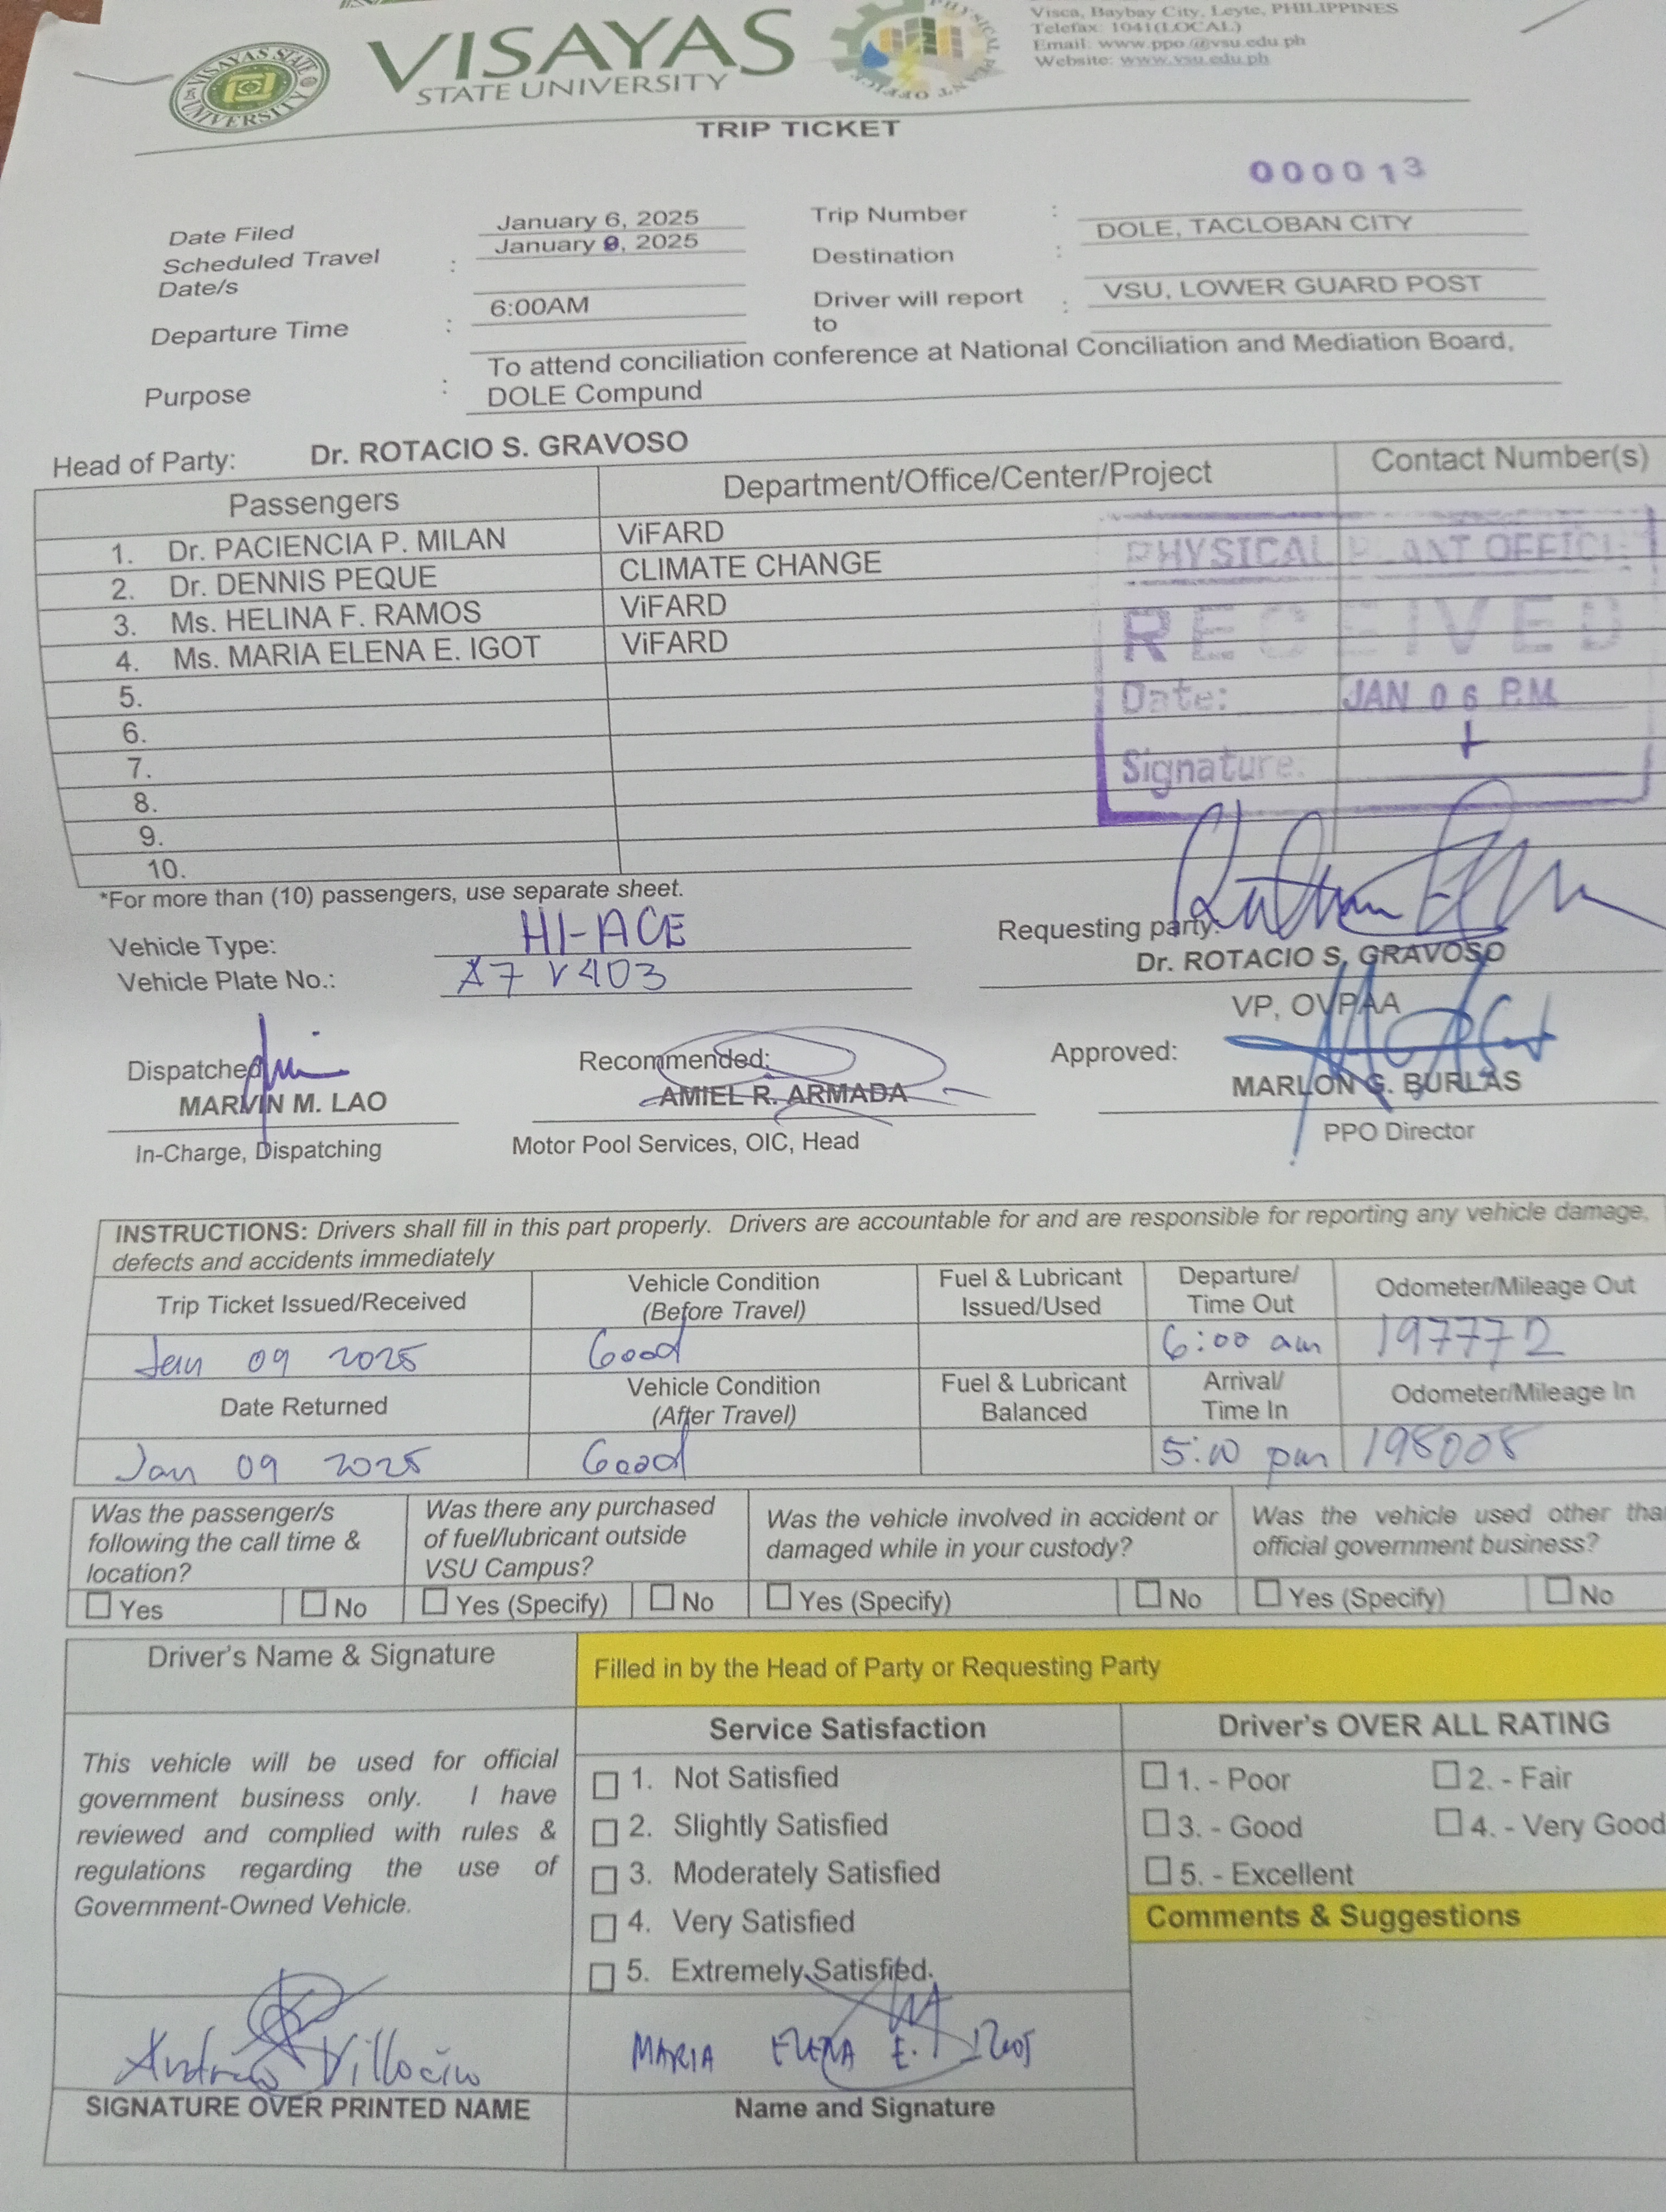 VISAYAS STATE UNIVERSITY
VISAYAS
STATE UNIVERSITY
Visca, Baybay City, Leyte, PHILIPPINES
Telefax: 1041(LOCAL)
Email: www.ppo@vsu.edu.ph
Website: www.vsu.edu.ph
TRIP TICKET
000013
Date Filed January 6, 2025 Trip Number :
Scheduled Travel Date/s : January 9, 2025 Destination : DOLE, TACLOBAN CITY
Departure Time : 6:00AM Driver will report to : VSU, LOWER GUARD POST
Purpose : To attend conciliation conference at National Conciliation and Mediation Board,
DOLE Compund
Head of Party: Dr. ROTACIO S. GRAVOSO
Passengers Department/Office/Center/Project Contact Number(s)
1. Dr. PACIENCIA P. MILAN ViFARD
2. Dr. DENNIS PEQUE CLIMATE CHANGE
3. Ms. HELINA F. RAMOS ViFARD
4. Ms. MARIA ELENA E. IGOT ViFARD
5.
6.
7.
8.
9.
10.
PHYSICAL PLANT OFFICE
RECEIVED
Date: JAN 06 P.M.
Signature:
*For more than (10) passengers, use separate sheet.
Vehicle Type: HI-ACE
Vehicle Plate No.: A7 V403
Requesting party:
Dr. ROTACIO S. GRAVOSO
VP, OVPAA
Dispatched Recommended: Approved:
MARVIN M. LAO AMIEL R. ARMADA MARLON G. BURLAS
In-Charge, Dispatching Motor Pool Services, OIC, Head PPO Director
INSTRUCTIONS: Drivers shall fill in this part properly. Drivers are accountable for and are responsible for reporting any vehicle damage,
defects and accidents immediately
Trip Ticket Issued/Received Vehicle Condition (Before Travel) Fuel & Lubricant Issued/Used Departure/ Time Out Odometer/Mileage Out
Jan 09 2025 Good 6:00 am 197772
Date Returned Vehicle Condition (After Travel) Fuel & Lubricant Balanced Arrival/ Time In Odometer/Mileage In
Jan 09 2025 Good 5:10 pm 198008
Was the passenger/s
following the call time &
location?
Yes No
Was there any purchased
of fuel/lubricant outside
VSU Campus?
Yes (Specify) No
Was the vehicle involved in accident or
damaged while in your custody?
Yes (Specify) No
Was the vehicle used other
official government business?
Yes (Specify) No
Driver's Name & Signature
Filled in by the Head of Party or Requesting Party
This vehicle will be used for official
government business only. I have
reviewed and complied with rules &
regulations regarding the use of
Government-Owned Vehicle.
Service Satisfaction
1. Not Satisfied
2. Slightly Satisfied
3. Moderately Satisfied
4. Very Satisfied
5. Extremely Satisfied.
Driver's OVER ALL RATING
1. - Poor 2. - Fair
3. - Good 4. - Very Good
5. - Excellent
Comments & Suggestions
MARIA ELENA E.
SIGNATURE OVER PRINTED NAME Name and Signature